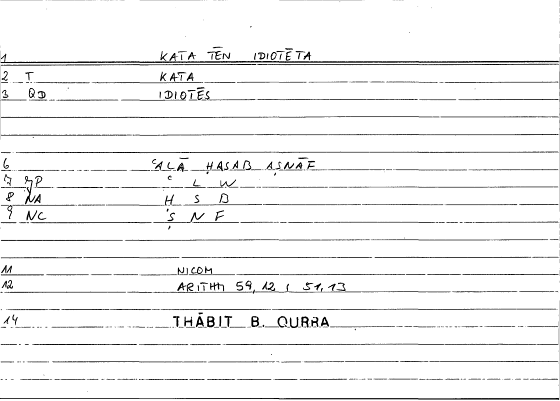 1 KATA TĒN IDIOTĒTA
2 T KATA
3 QD IDIOTĒS
6 ʿALĀ ḤASAB AṢNĀF
7 ʿ L W
8 NA Ḥ S B
9 NC Ṣ N F
11 NICOM
12 ARITHM 59, 12 ; 51, 13
14 THĀBIT B. QURRA